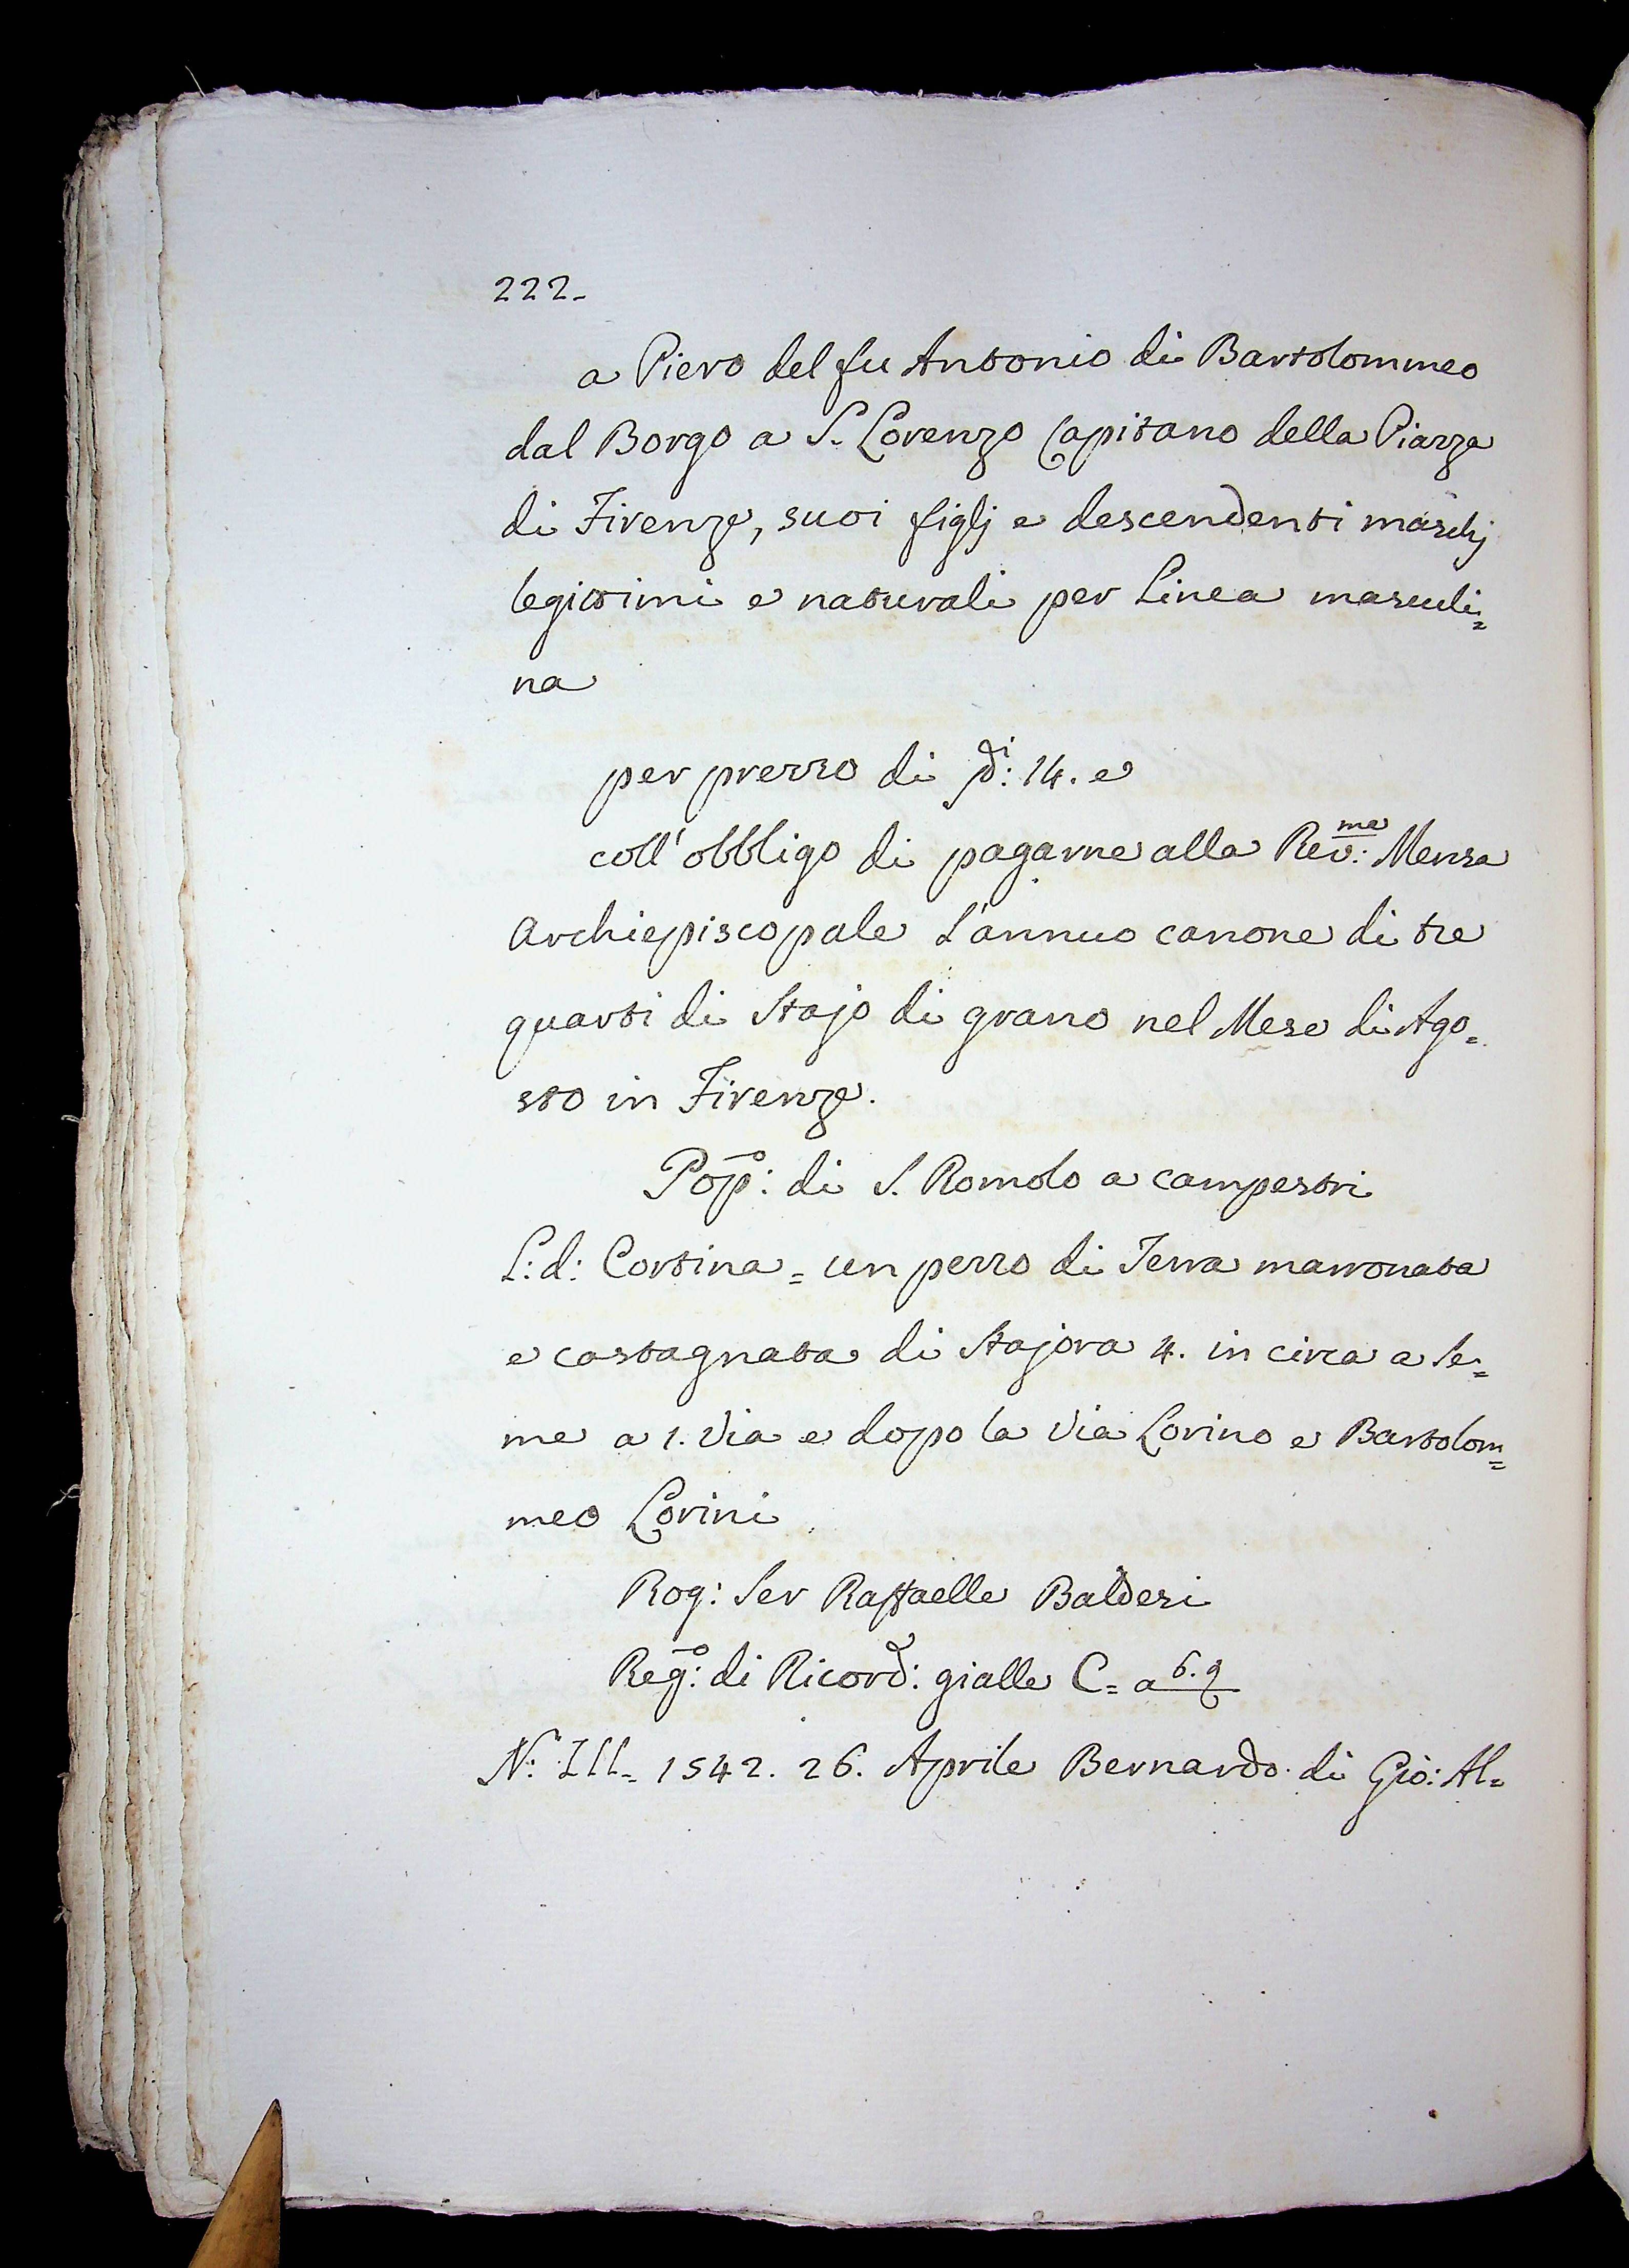 222.
a Piero del fu Antonio di Bartolommeo
dal Borgo a S. Lorenzo Capitano della Piazza
di Firenze, suoi figlj e descendenti maschj
legittimi e naturali per Linea masculi=
na
per prezzo di 14. e
coll'obbligo di pagarne alla Rev:ma Mensa
Archiepiscopale l'annuo canone di tre
quarti di Stajo di grano nel Mese di Ago=
sto in Firenze.
Pop:o di S. Romolo a campestri
L: d: Cortina = un pezzo di Terra marronata
e castagnata di Stajora 4. in circa a Se=
me a 1. Via e dopo la Via Lorino e Bartolom=
meo Lorini
Rog: Ser Raffaelle Balderi
Reg:o di Ricord: gialle C= a 6. 9
N: III= 1542. 26. Aprile Bernardo di Gio: Al=